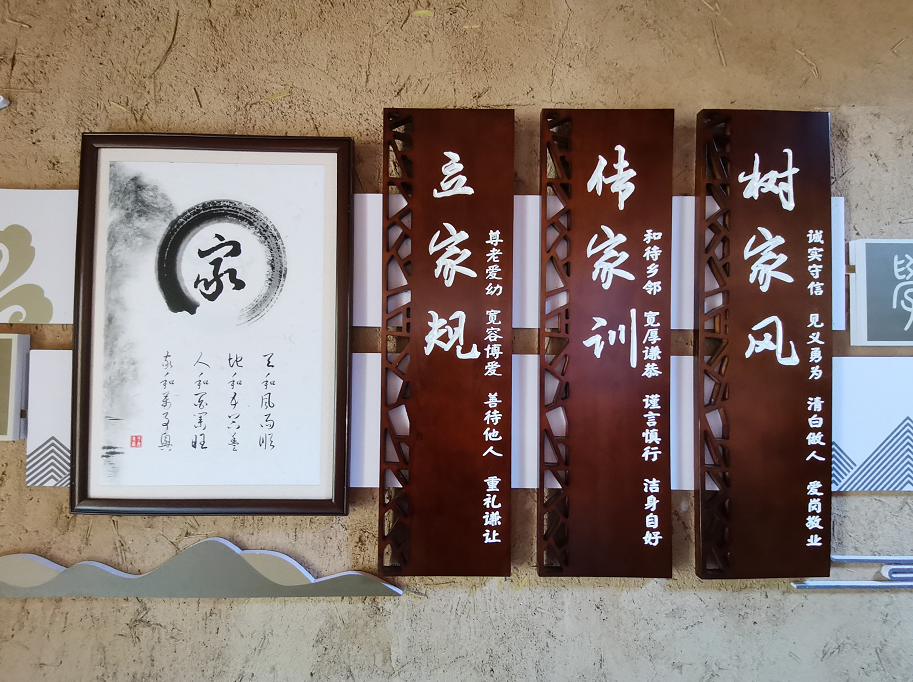 家
天和风雨顺
地和五谷丰
人和百业旺
家和万事兴
立家规
尊老爱幼 宽容博爱 善待他人 重礼谦让
传家训
和待乡邻 宽厚谦恭 谨言慎行 洁身自好
树家风
诚实守信 见义勇为 清白做人 爱岗敬业
學